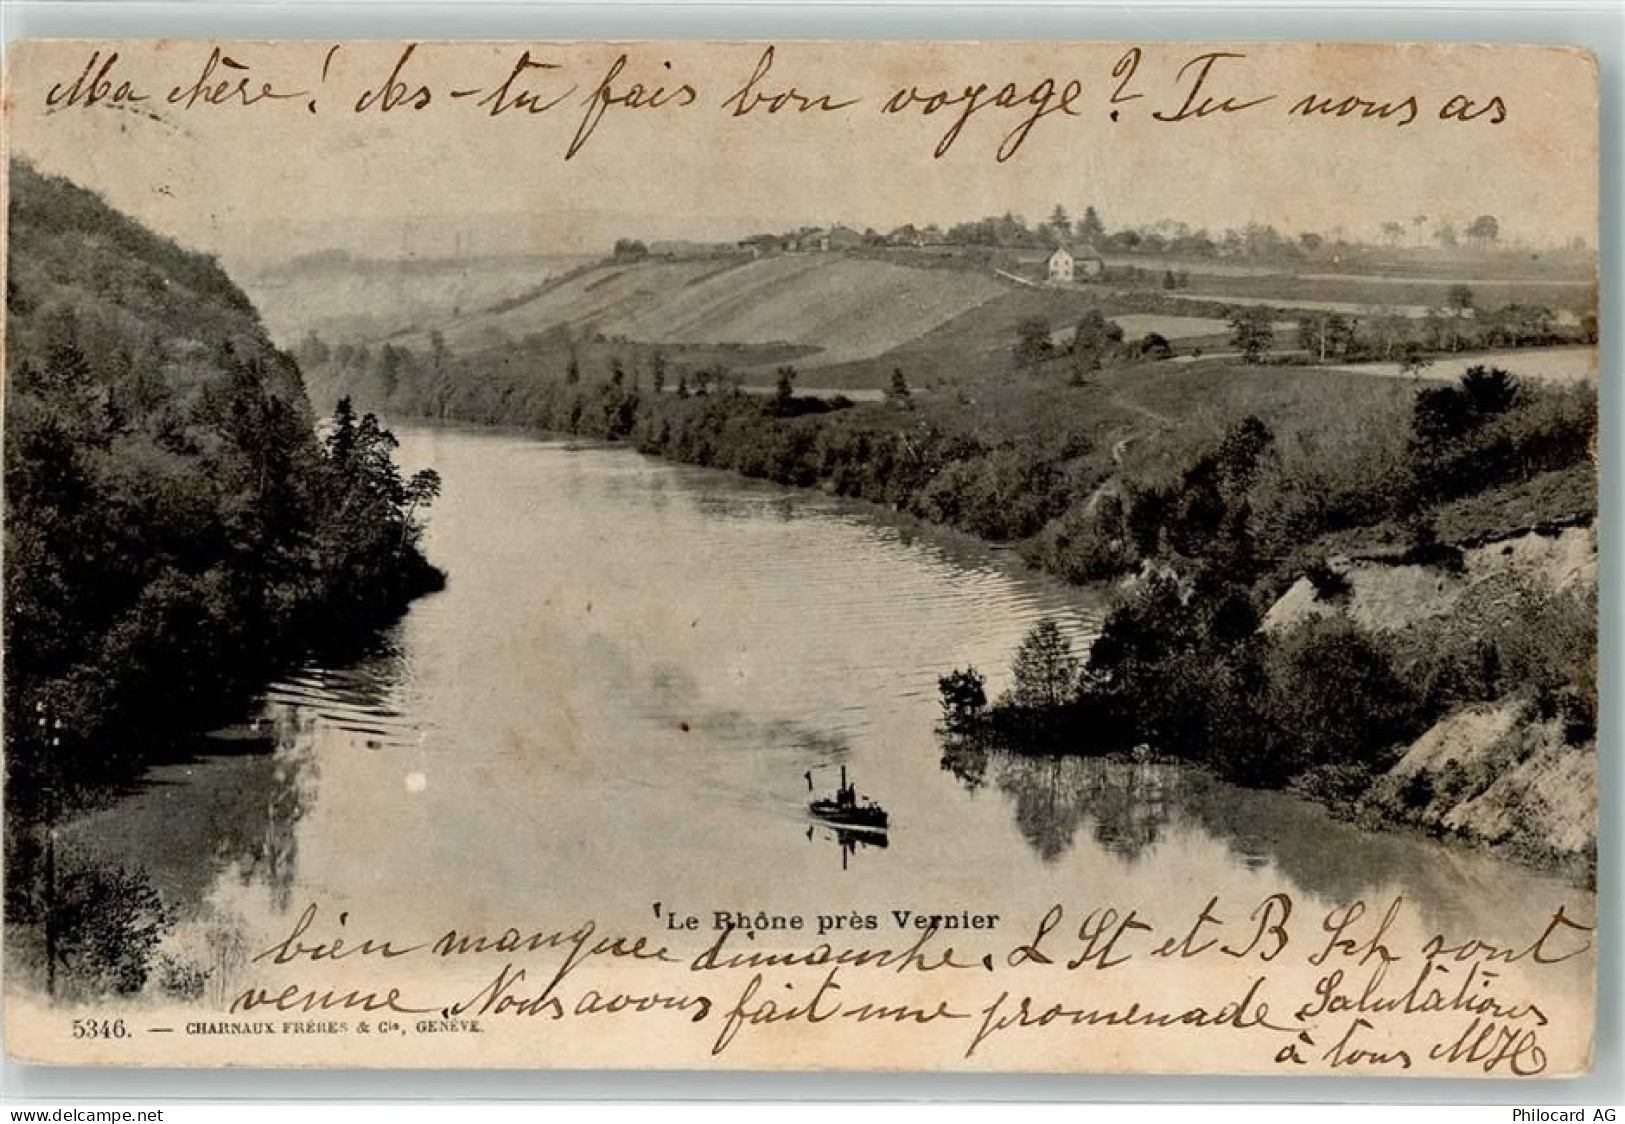 Ma chère! As-tu fais bon voyage? Tu nous as
Le Rhône près Vernier
bien manquée dimanche. L St et B Sch sont
venue Nous avons fait une promenade Salutations
à tous MH
5346. — CHARNAUX FRÈRES & Cie, GENÈVE.
www.delcampe.net
Philocard AG